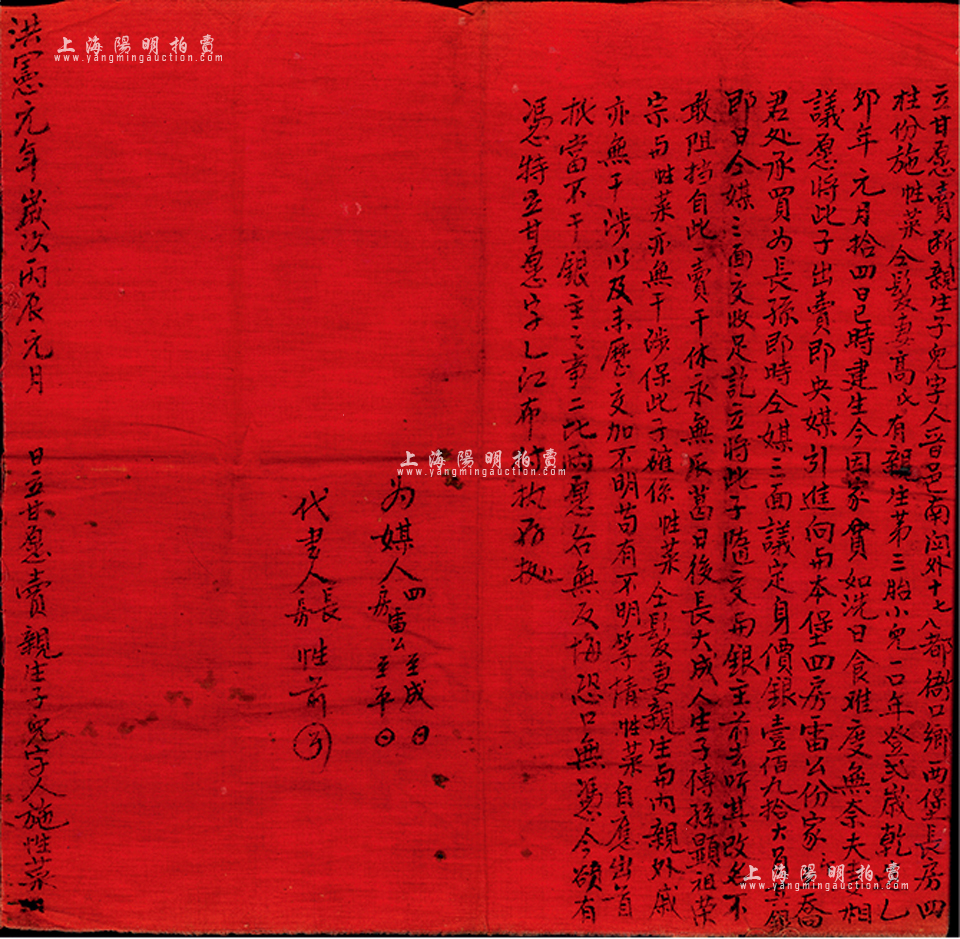 立甘愿賣斷親生子兒字人晋邑南関外十七八都衙口鄉西堡長房四
柱份施性菜仝髮妻高氏有親生第三胎小兒一口年登弍歲乾 乙
夘年元月拾四日巳時建生今因家貧如洗日食难度無奈夫妻相
議愿将此子出賣即央媒引進向與本堡四房雷公份家 喬
君处承買为長孫即時仝媒三面議定身價銀壹佰九拾大員其銀
即日仝媒三面交收足訖立将此子隨交與銀主前去听其改名不
敢阻挡自此一賣千休永無反葛日後長大成人生子傳孫顯祖荣
宗與性菜亦無干涉保此子確係性菜仝髮妻親生與内親外戚
亦無干涉以及来歷交加不明苟有不明等情性菜自應出首
抵當不干銀主之事二比兩愿各無反悔恐口無憑今欲有
憑特立甘愿字乙江布付执存炤
为媒人四房雷公 至成 至平
代書人長房性前
洪憲元年歲次丙辰元月 日立甘愿賣親生子兒字人施性菜
上海陽明拍賣
www.yangmingauction.com
上海陽明拍賣
www.yangmingauction.com
上海陽明拍賣
www.yangmingauction.com